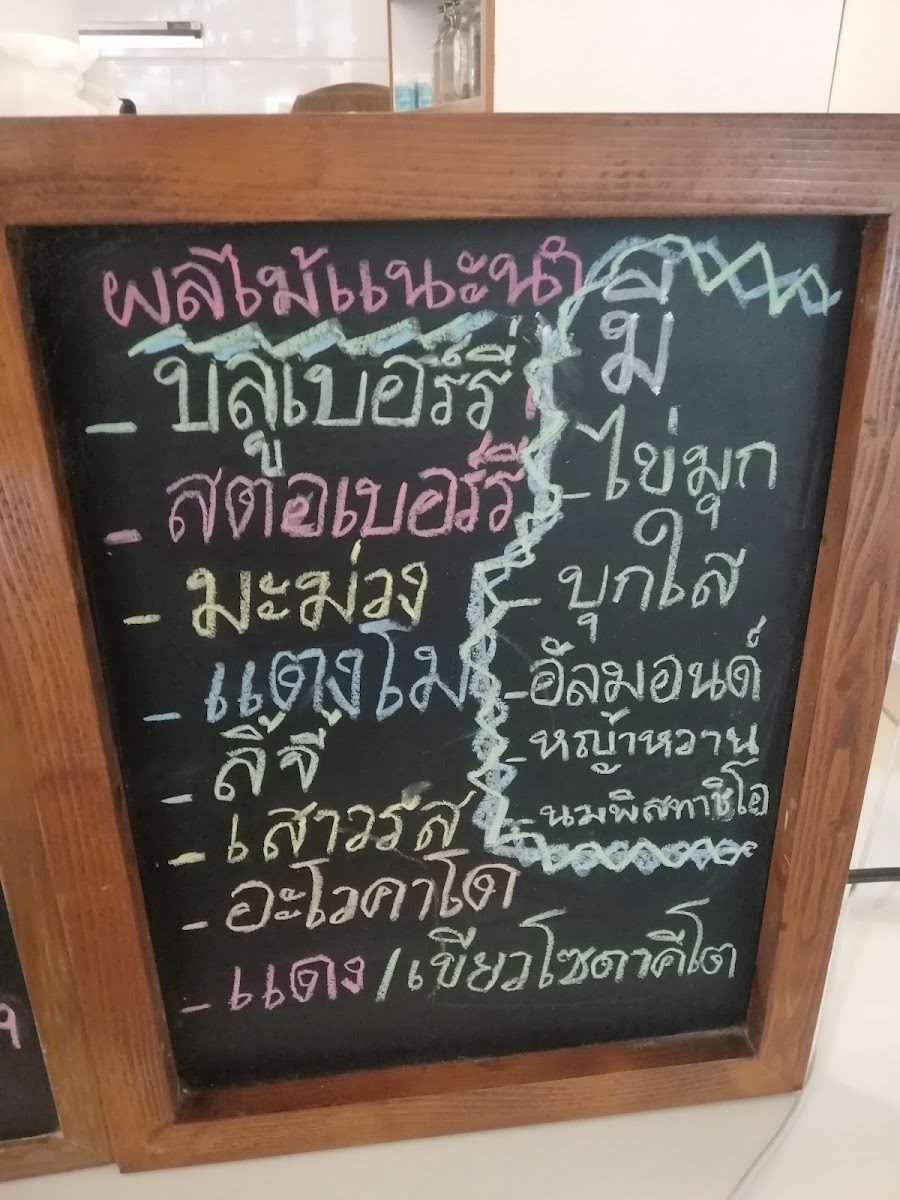 ผลไม้แนะนำ
- บลูเบอร์รี่
- สตอเบอร์รี่
- มะม่วง
- แตงโม
- ลิ้จี่
- เสาวรส
- อะโวคาโด
- แดง/เขียวโซดาคีโต
มี
- ไข่มุก
- บุกใส
- อัลมอนด์
- หญ้าหวาน
- นมพิสทาชิโอ